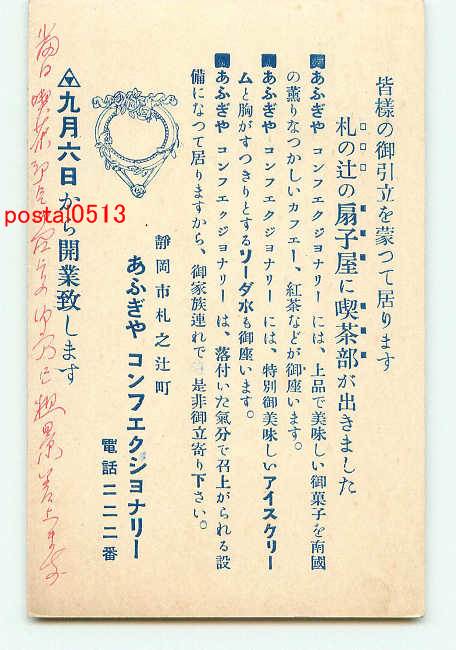 皆様の御引立を蒙つて居ります
札の辻の扇子屋に喫茶部が出きました
あふぎや コンフエクジョナリー には、上品で美味しい御菓子を南國
の薫りなつかしいカフエー、紅茶などが御座います。
あふぎや コンフエクジョナリー には、特別御美味しいアイスクリー
ムと胸がすつきりとするソーダ水も御座います。
あふぎや コンフエクジョナリー は、落付いた氣分で召上がられる設
備になつて居りますから、御家族連れで是非御立寄り下さい。
靜岡市札之辻町
あふぎや コンフエクジョナリー
電話二二二番
九月六日から開業致します
当日喫茶部
粗景差上ます
posta10513